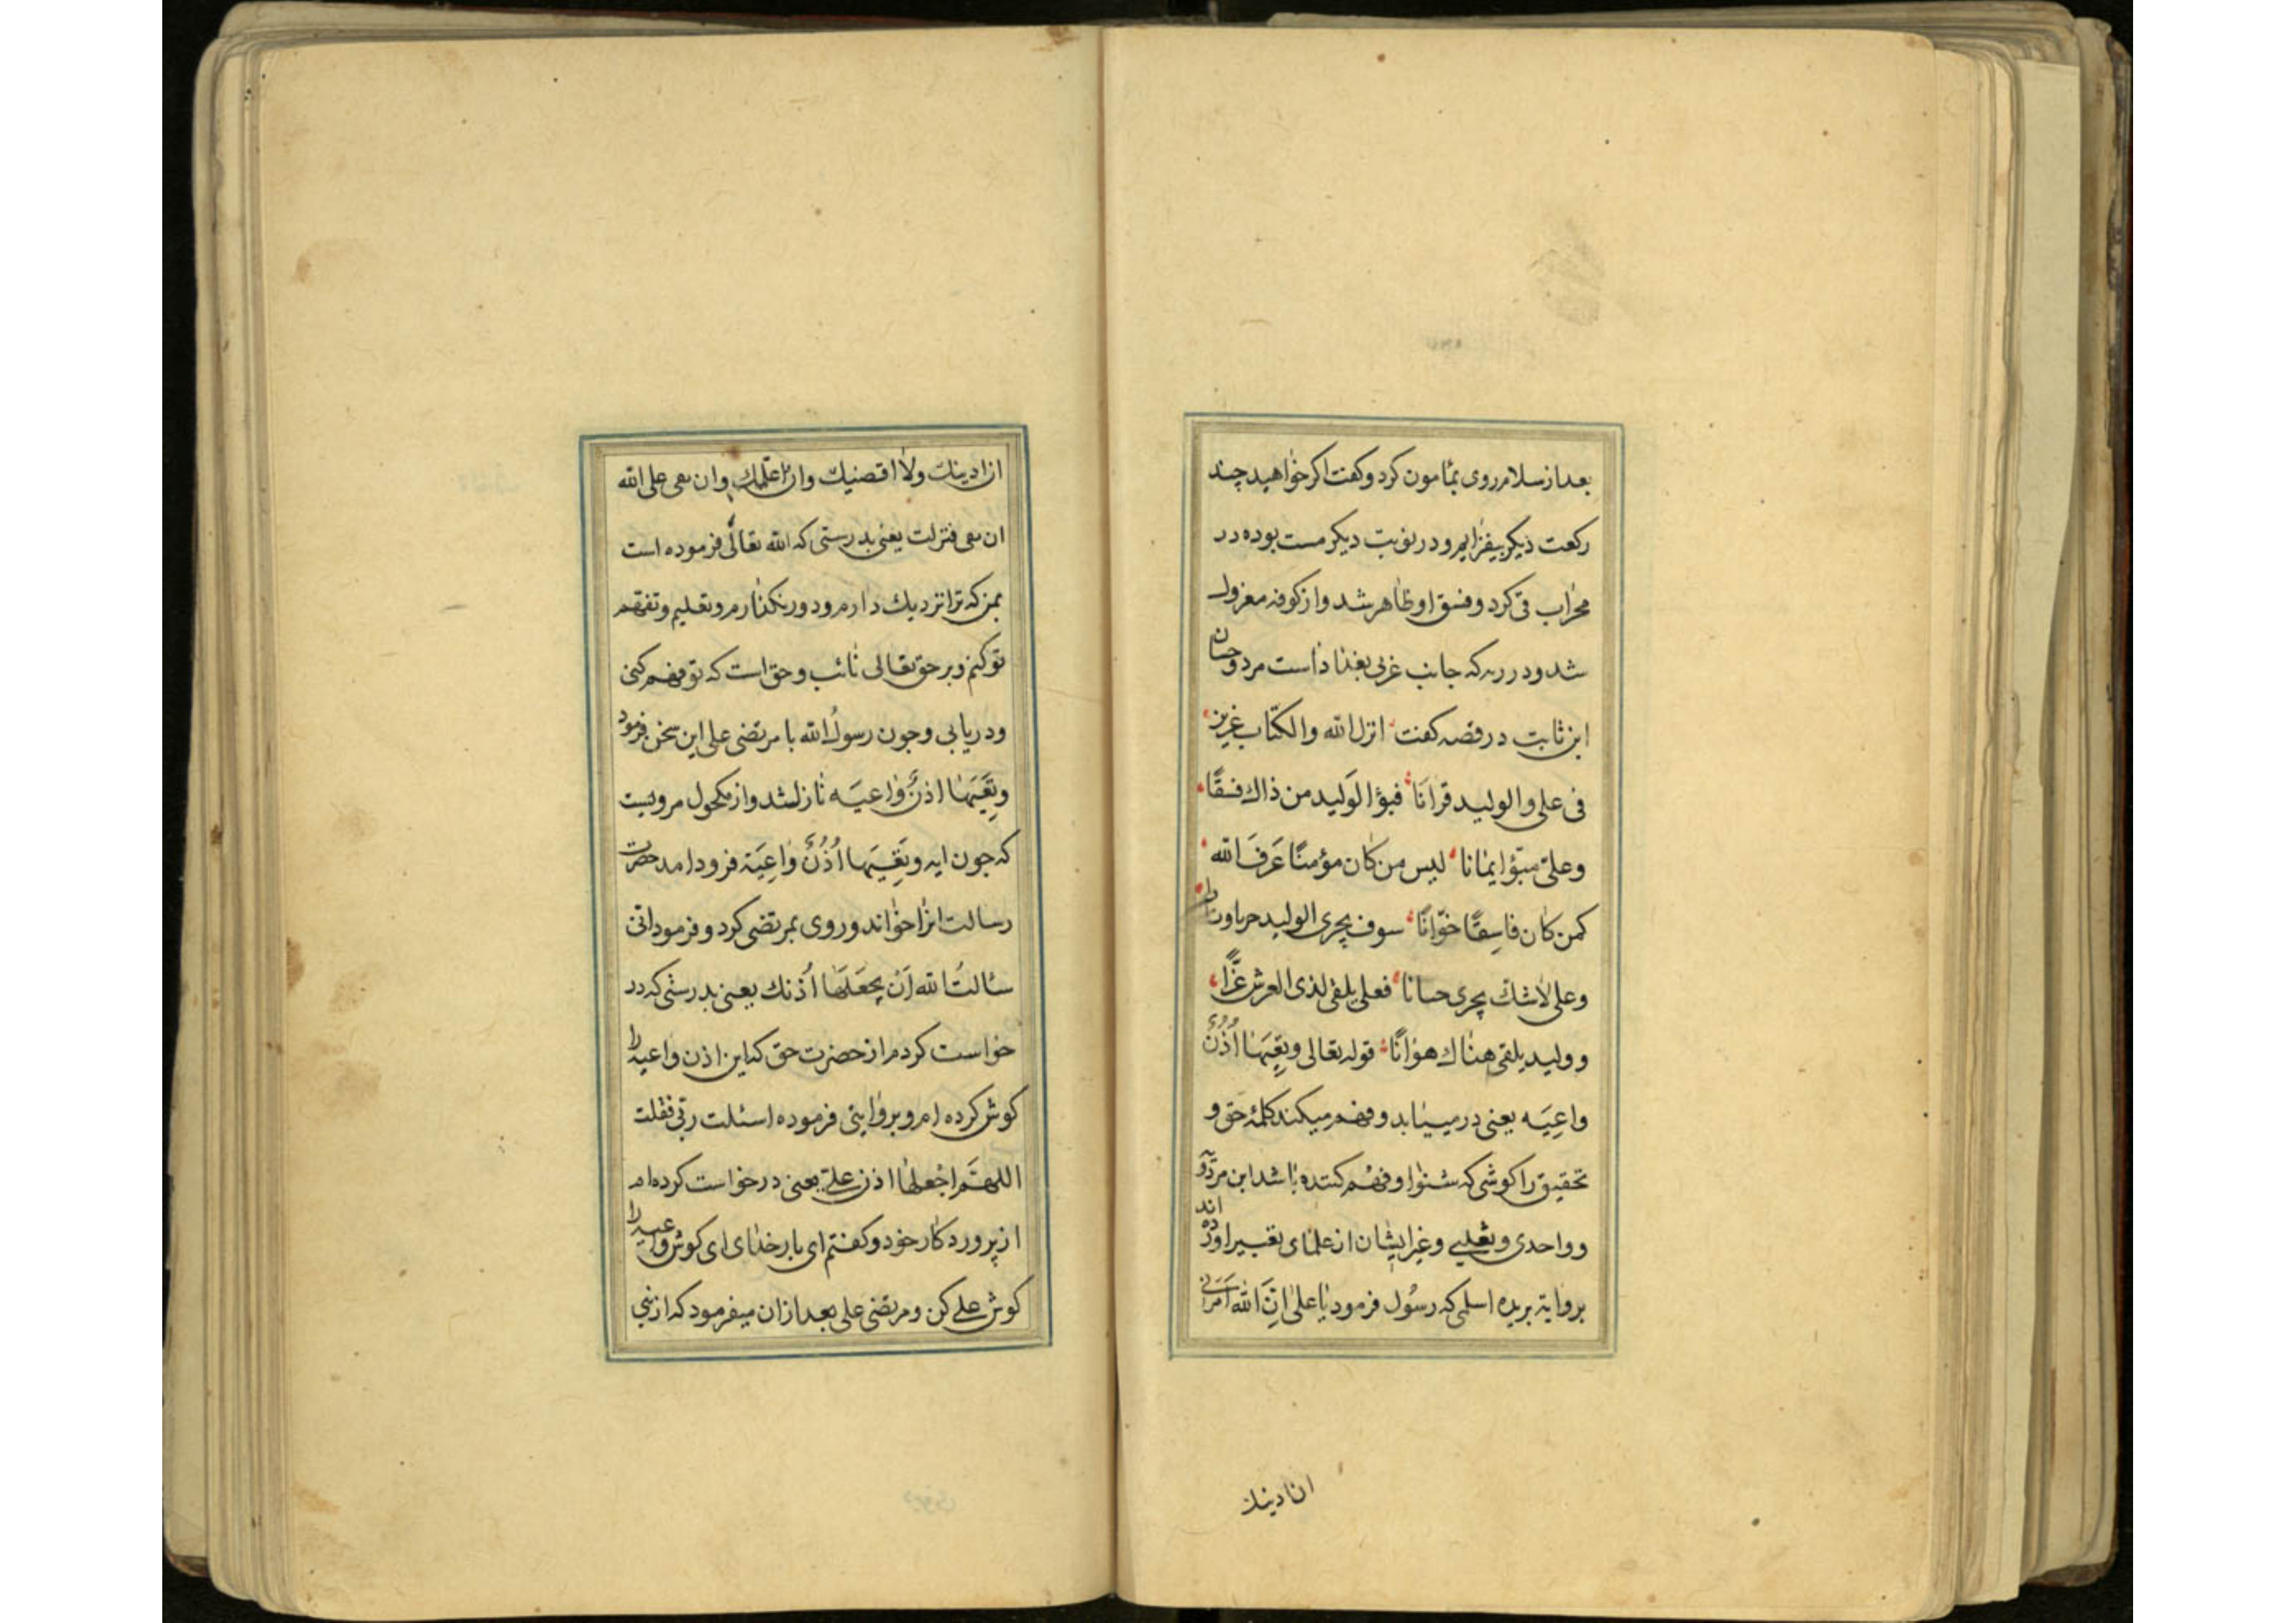 بعد از سلام روی بمامون کرد و کفت اکر خواهید چند
رکعت دیکر بیفزایم و در نوبت دیکر مست بوده در
محراب قی کرد و فسق او ظاهر شد و از کوفه معزول
شد و در رقه که جانب غربی بغداد است مرد و حسان
ابن ثابت در قصه کفت انزل الله والکتاب عزیز
فی علی والولید قرانا فبؤا الولید من ذاك فسقا
وعلی مبؤ ایمانا لیس من کان مؤمنا عرف الله
کمن کان فاسقا خوانا سوف یجری الولید
وعلی لاشك یجری حسانا فعلی یلقی لذی العرش عزا
وولید یلقی هناك هوانا قوله تعالی وتعیها اذن
واعیه یعنی در مییابد و فهم میکند کلمه حق و
تحقیق را کوشی که شنوا و فهم کننده باشد ابن مردو
وواحدی وثعلبی وغیر ایشان از علمای تفسیر اورده اند
بروایة بریده اسلمی که رسول فرمود یا علی ان الله امرنی
ان ادینك
ان ادینك ولا اقصیك وان اعلمك وان تعی علی الله
ان تعی فنزلت یعنی بدرستی که الله تعالی فرموده است
بمن که ترا نزدیك دارم و دور نکذارم و تعلیم و تفهم
تو کنم و بر حق تعالی ثابت و حق است که تو فهم کنی
و دریابی و جون رسول الله با مرتضی علی این سخن فرمود
وتعیها اذن واعیه نازل شد و از مکحول مرویست
که جون ایه وتعیها اذن واعیة فرود امد حضرت
رسالت انرا خواند و روی بمرتضی کرد و فرمود انی
سالت الله ان یجعلها اذنك یعنی بدرستی که در
خواست کردم از حضرت حق که این اذن واعیه را
کوش کرده ام و بروایتی فرموده اسئلت ربی فقلت
اللهم اجعلها اذن علی یعنی درخواست کرده ام
از پروردکار خود و کفتم ای بار خدای ای کوش واعیه را
کوش علی کن و مرتضی علی بعد از ان میفرمود که از نبی